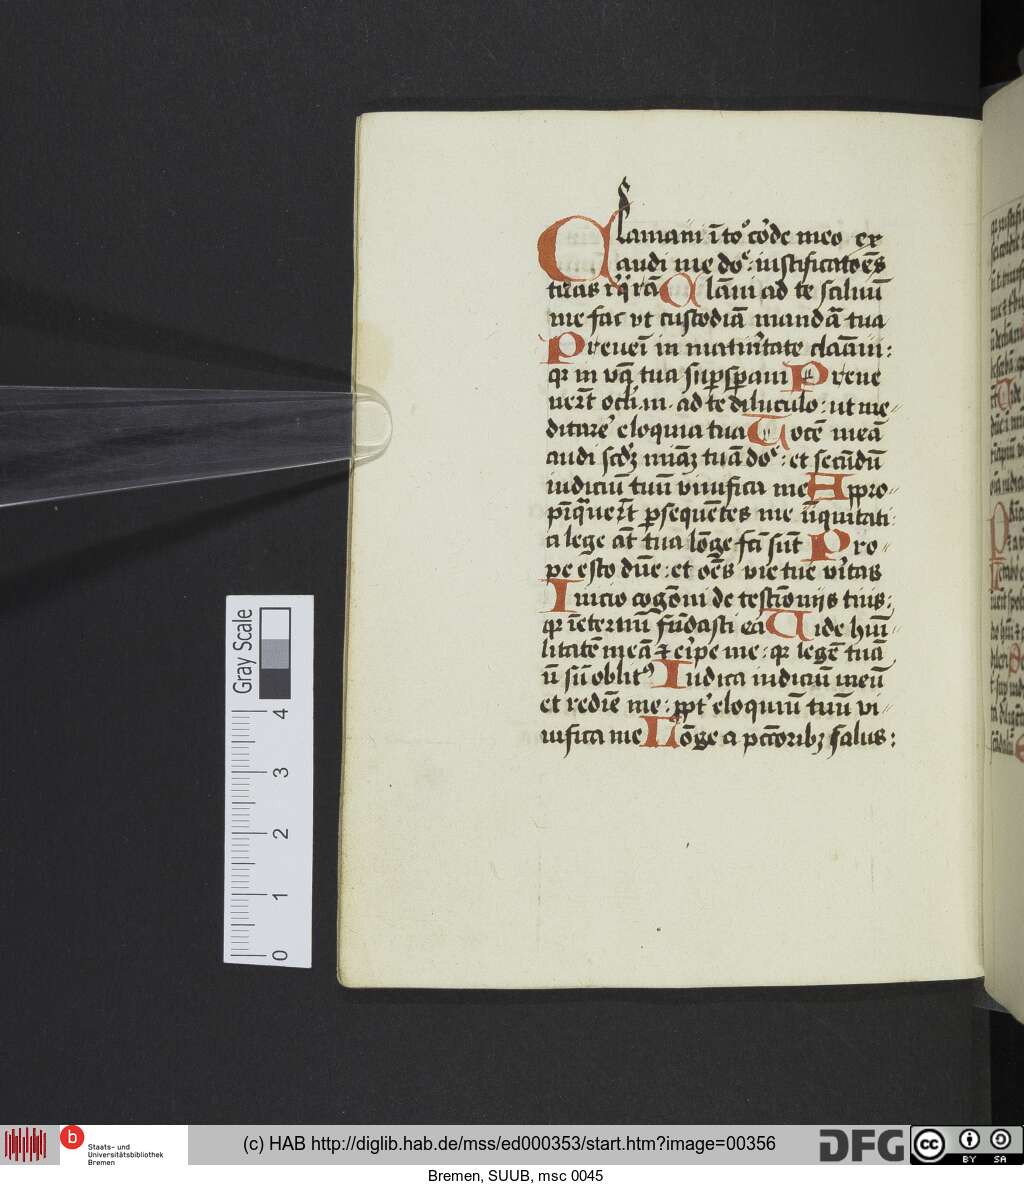 Clamavi ī to° co͛de meo ex
audi me do͛ : iustificatōēs
tuas r͛qͥrā Clāvi ad te saluū
me fac vt custodiā mandā tua
Prevenī in maturͥtate clāāvi :
qꝛ in vꝭbꝭ tua suꝑsꝑavi Preve
nerūt ocli mͥ ad te diluculo : ut me〃
ditare͛ eloquia tua Vocē meā
audi scd̄ꝫ miāꝫ tuā do͛ : et secūdū
iudiciū tuū vivifica me Appro〃
pīquerūt ꝑsequētes me īiquitati
a lege āt tua lōge fcī sūt Pro〃
pe ēsto dūe : et oēs vie tue vīͥtas
Inicio cogōvi de testīoniis tuis :
qꝛ ī eternū fūdasti ea Vide hūi〃
litatē meā ⁊ eͥpe me : qꝛ legē tuā
ū sū oblitꝰ Iudica iudiciū meū
et redīe me : ꝓpt͛ eloquiū tuū vi〃
vifica me Lōge a pcc̄oribꝫ salus :
Gray Scale
4
3
2
1
0
b
Staats- und
Universitätsbibliothek
Bremen
(c) HAB http://diglib.hab.de/mss/ed000353/start.htm?image=00356
DFG
cc
BY SA
Bremen, SUUB, msc 0045